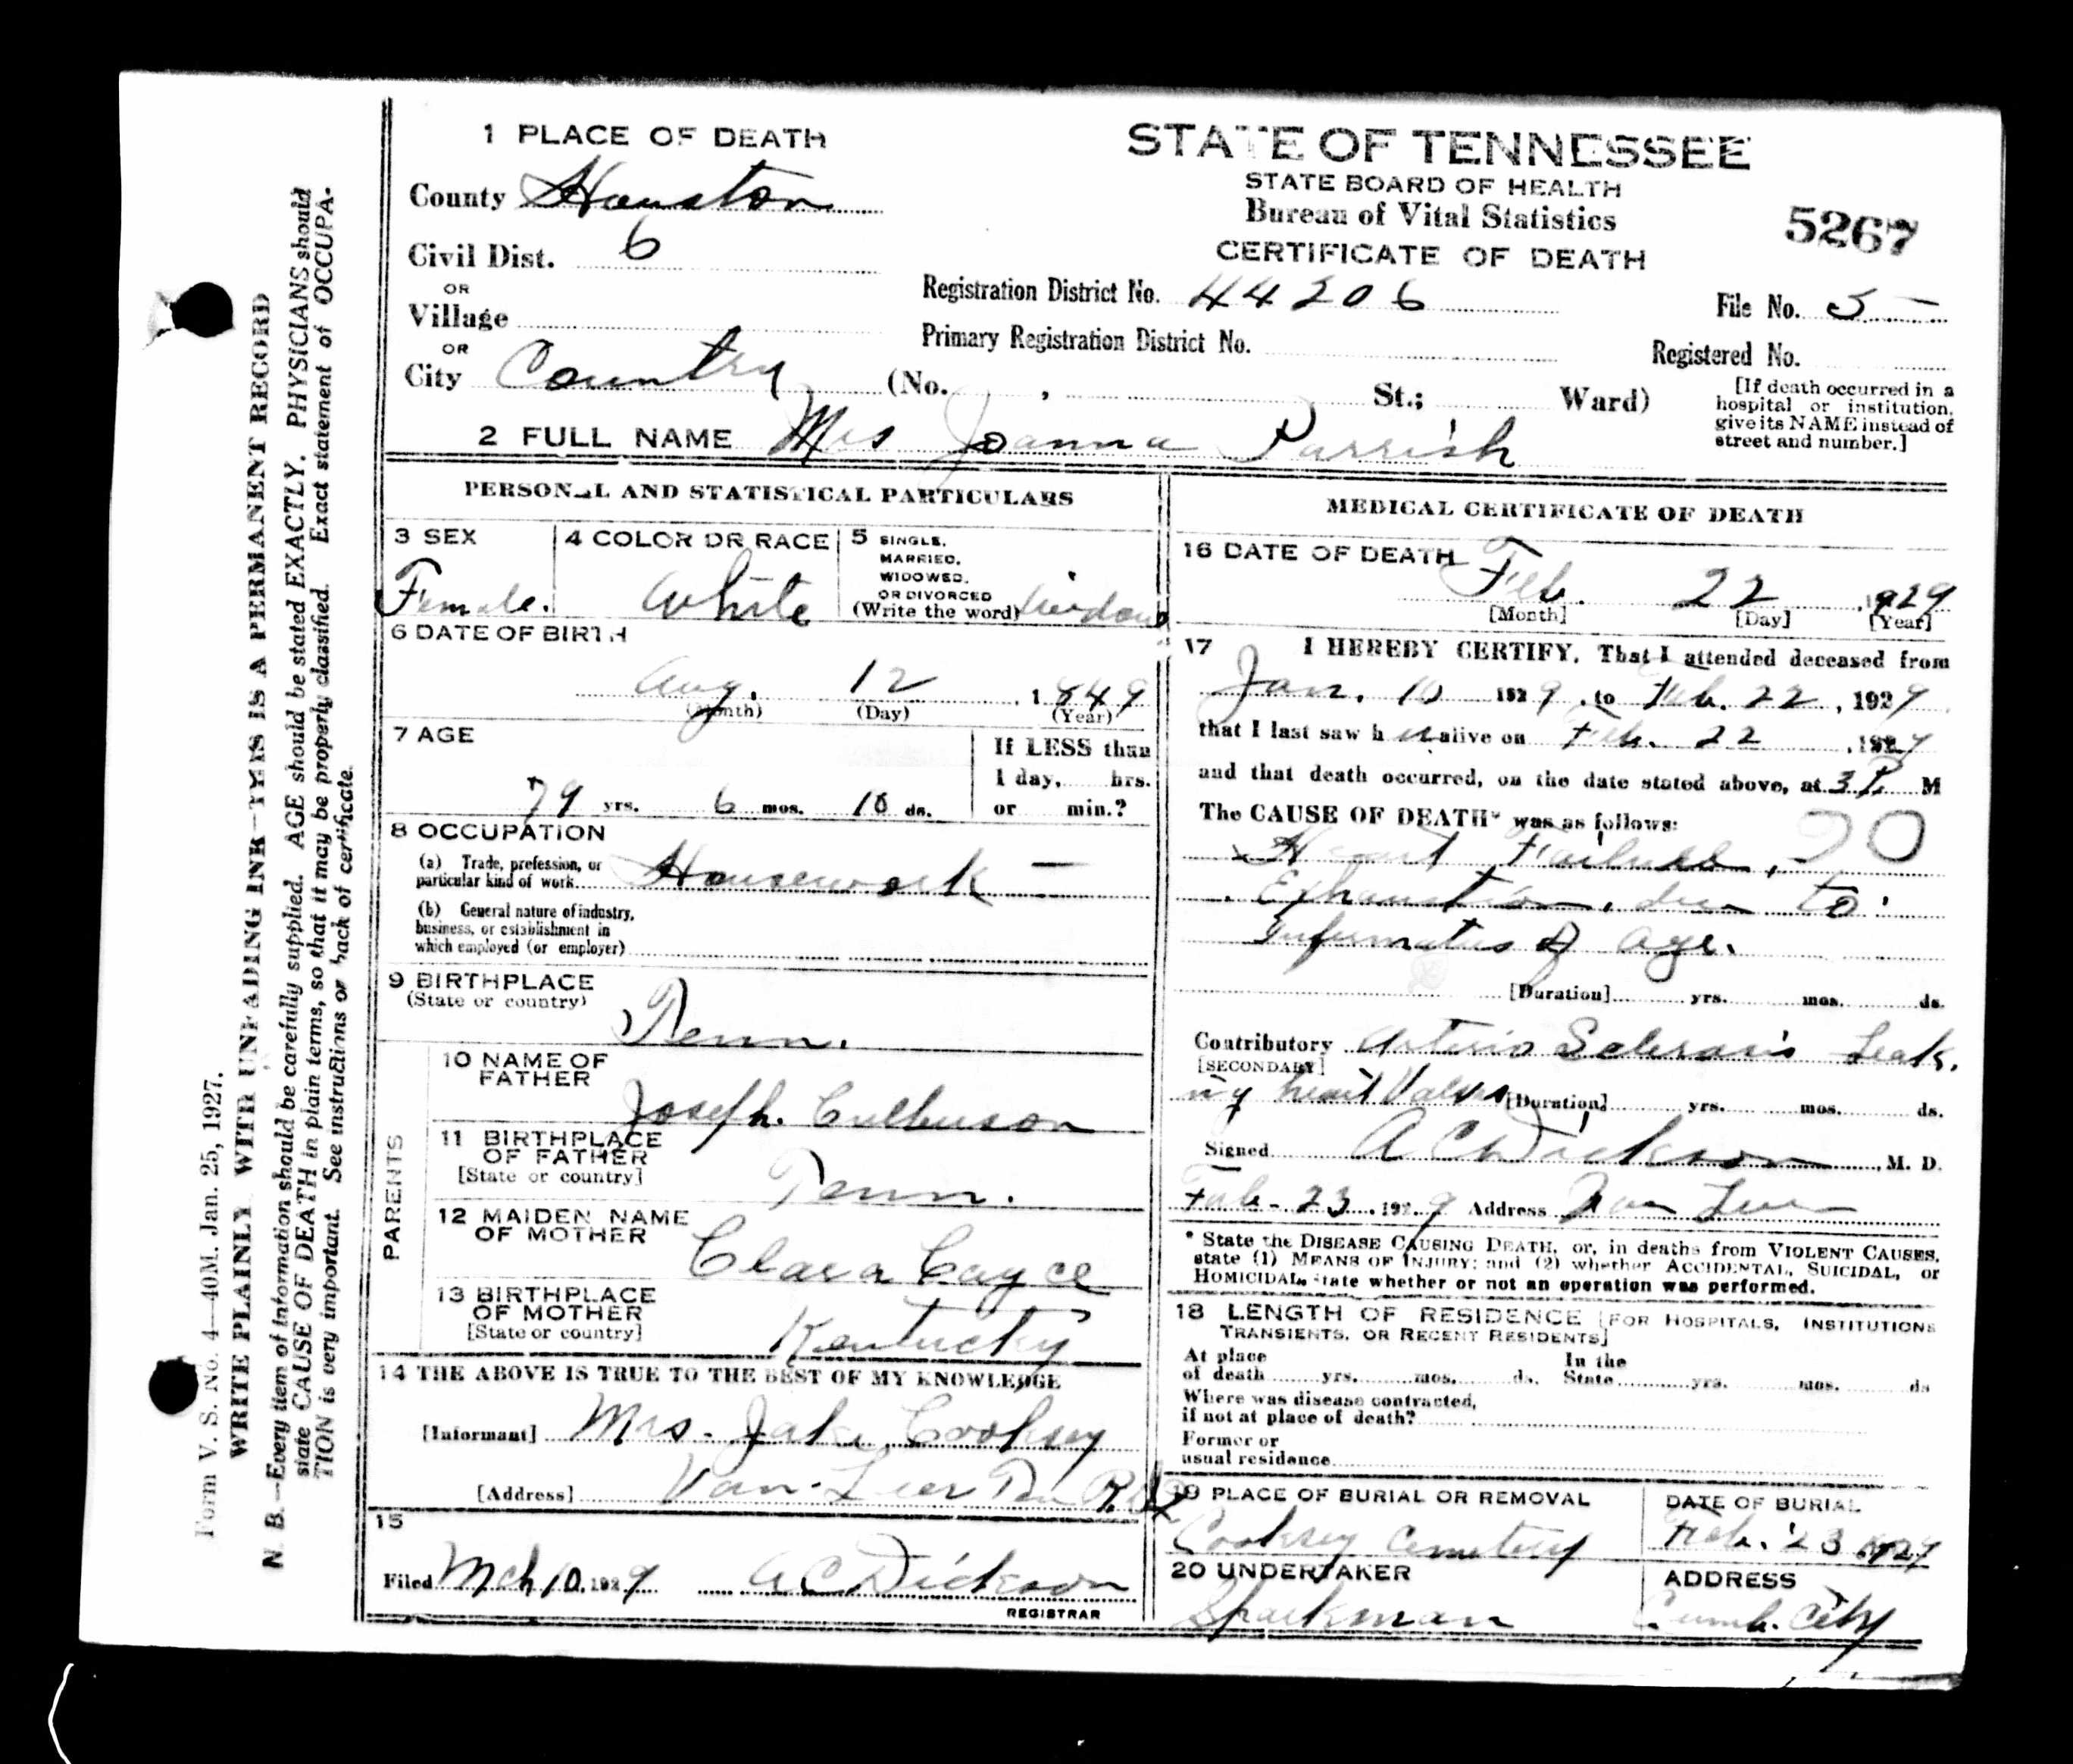 1 PLACE OF DEATH
County Houston
Civil Dist. 6
OR
Village
OR
City Country (No. , St.; Ward)
STATE OF TENNESSEE
STATE BOARD OF HEALTH
Bureau of Vital Statistics
CERTIFICATE OF DEATH
5267
Registration District No. 44206
File No. 5
Primary Registration District No.
Registered No.
[If death occurred in a
hospital or institution,
give its NAME instead of
street and number.]
2 FULL NAME Mrs Joanna Parrish
PERSONAL AND STATISTICAL PARTICULARS
3 SEX
Female.
4 COLOR OR RACE
White
5 SINGLE,
MARRIED,
WIDOWED,
OR DIVORCED
(Write the word) Widow
6 DATE OF BIRTH
Aug. 12, 1849
(Month) (Day) (Year)
7 AGE
79 yrs. 6 mos. 10 ds.
If LESS than
1 day, hrs.
or min.?
8 OCCUPATION
(a) Trade, profession, or
particular kind of work Housework —
(b) General nature of industry,
business, or establishment in
which employed (or employer)
9 BIRTHPLACE
(State or country)
Tenn.
PARENTS
10 NAME OF
FATHER
Joseph. Culberson
11 BIRTHPLACE
OF FATHER
[State or country]
Tenn.
12 MAIDEN NAME
OF MOTHER
Clara Cayce
13 BIRTHPLACE
OF MOTHER
[State or country]
Kentucky
14 THE ABOVE IS TRUE TO THE BEST OF MY KNOWLEDGE
[Informant] Mrs. Jake Cooksey
[Address] Van-Leer Ten R.
15
Filed Mch 10, 1929 A C Dickson
REGISTRAR
MEDICAL CERTIFICATE OF DEATH
16 DATE OF DEATH
Feb. 22, 1929
[Month] [Day] [Year]
17 I HEREBY CERTIFY, That I attended deceased from
Jan. 10 1929, to Feb. 22, 1929
that I last saw h er alive on Feb. 22, 1929
and that death occurred, on the date stated above, at 3 P. M
The CAUSE OF DEATH* was as follows:
Heart Failure, 90
Exhaustion, due to
Infirmities of age.
[Duration] yrs. mos. ds.
Contributory Arterio Sclerosis Leak
[SECONDARY]
ing heart Valves [Duration] yrs. mos. ds.
Signed A C Dickson, M. D.
Feb - 23, 1929 Address Van Leer
* State the DISEASE CAUSING DEATH, or, in deaths from VIOLENT CAUSES,
state (1) MEANS OF INJURY; and (2) whether ACCIDENTAL, SUICIDAL, or
HOMICIDAL, state whether or not an operation was performed.
18 LENGTH OF RESIDENCE [FOR HOSPITALS, INSTITUTIONS
TRANSIENTS, OR RECENT RESIDENTS]
At place
of death yrs. mos. ds. In the
State yrs. mos. ds
Where was disease contracted,
if not at place of death?
Former or
usual residence
19 PLACE OF BURIAL OR REMOVAL
Cooksey Cemetery
DATE OF BURIAL
Feb. 23 1929
20 UNDERTAKER
Sparkman
ADDRESS
Cumb. City
Form V. S. No. 4—40M. Jan. 25, 1927.
WRITE PLAINLY WITH UNFADING INK—THIS IS A PERMANENT RECORD
N. B.—Every item of information should be carefully supplied. AGE should be stated EXACTLY. PHYSICIANS should
state CAUSE OF DEATH in plain terms, so that it may be properly classified. Exact statement of OCCUPA-
TION is very important. See instructions on back of certificate.